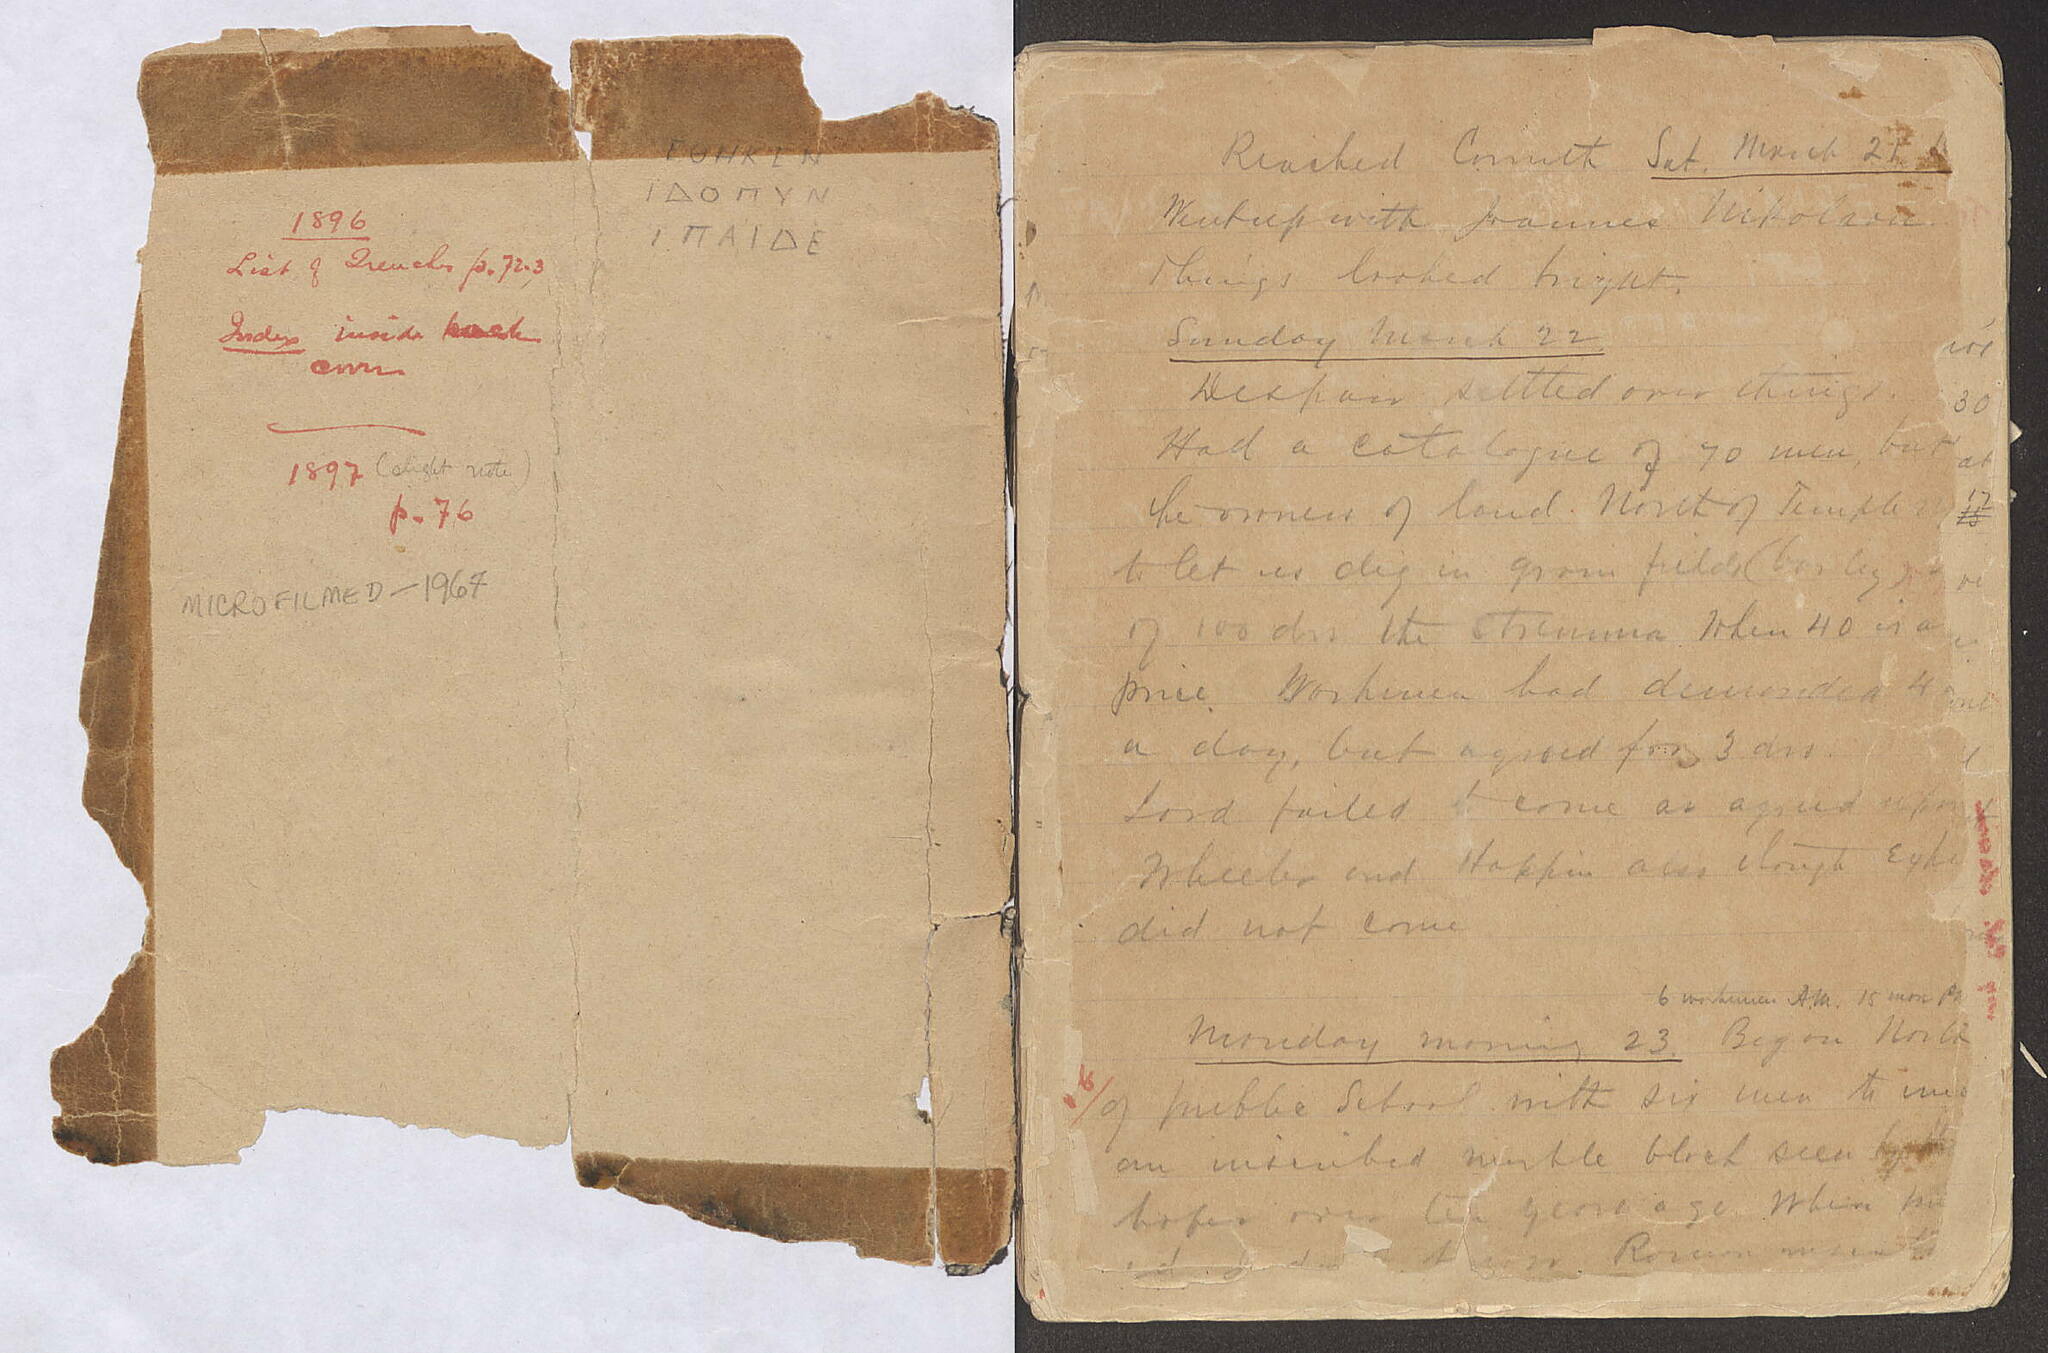 1896
List of Trenches p. 72-3
Index inside back
cover
1897 (slight note)
p. 76
MICROFILMED – 1967
ΕΘΗΚΕΝ
ΙΔΟΠΥΝ
ΙΠΑΙΔΕ
Reached Corinth Sat. March 21
Went up with Joannes Nikolaou.
Things looked bright.
Sunday March 22
Despair settled over things.
Had a catalogue of 70 men, but
the owners of land North of Temple
to let us dig in grain fields (barley)
of 100 drs the stremma when 40 is a
price. Workmen had demanded 4
a day, but agreed for 3 drs.
Lord failed to come as agreed upon
Wheeler and Hoppin also though
did not come
6 workmen A.M. 15 more
Monday morning 23. Began North
of public School with six men to
an inscribed marble block seen by
over ten years ago. When
Roman
30
at
17